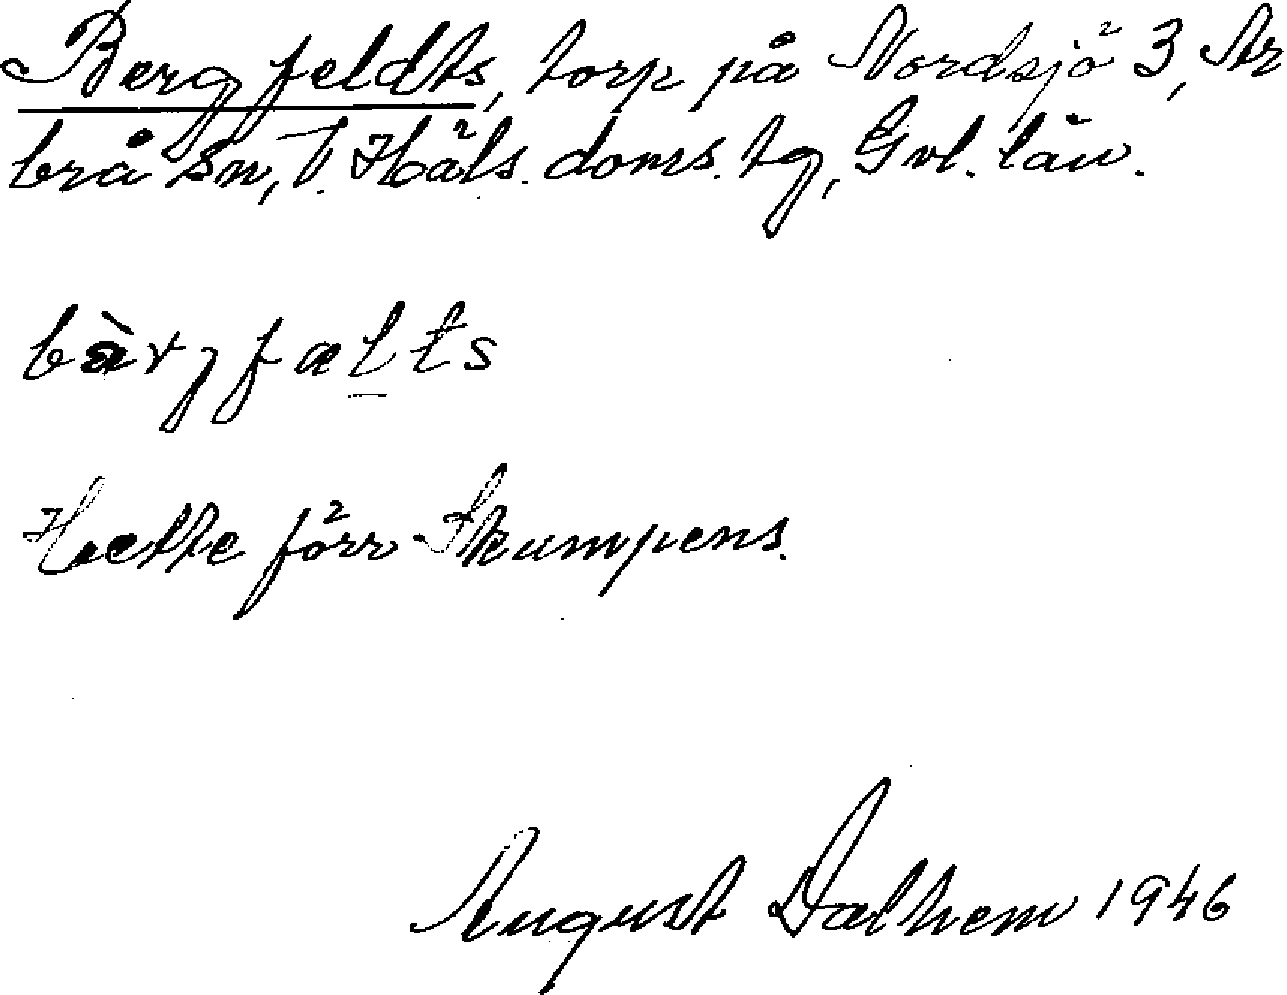 Bergfeldts, torp på Nordsjö 3, Ar
brå sn, V. Häls. doms. tg, Gvl. län.
bàrgfælts
Hette förr Skumpens.
August Dalhem 1946